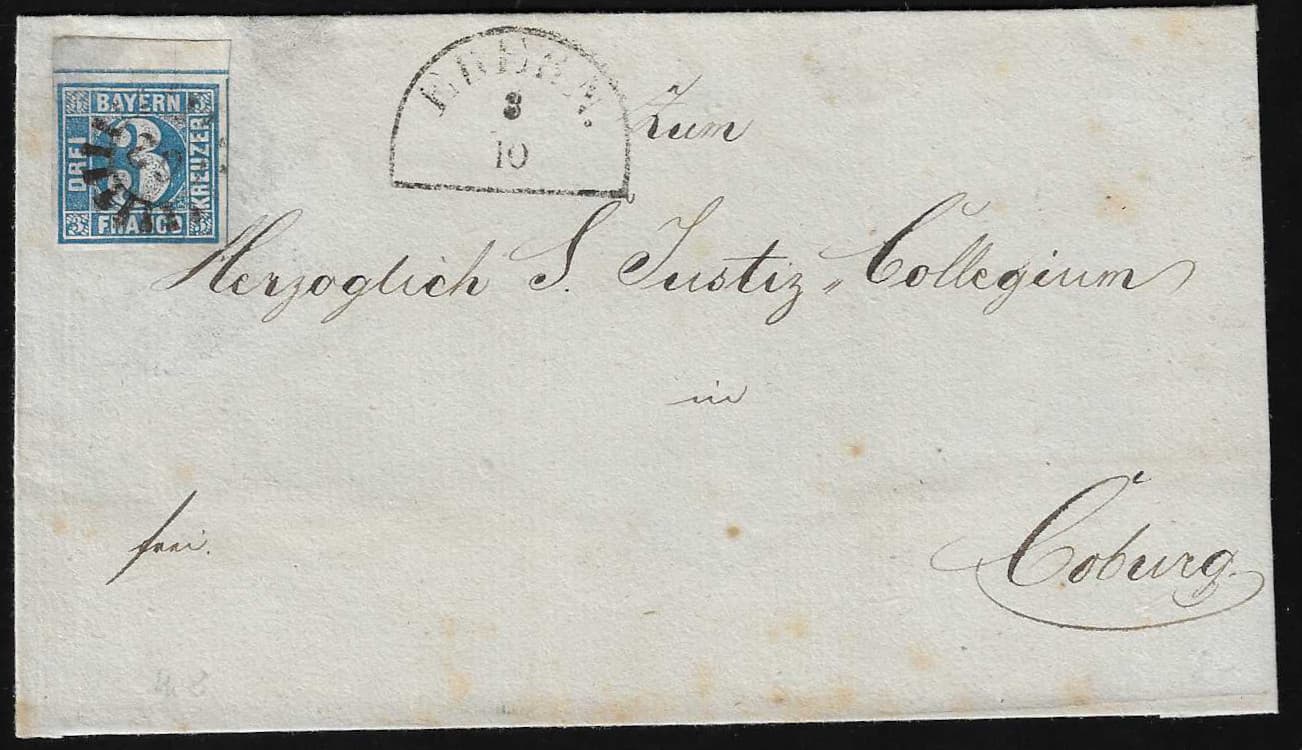 BAYERN
DREI
3
KREUZER
FRANCO
3
10
Zum
Herzoglich S. Justiz-Collegium
in
Coburg.
frei.